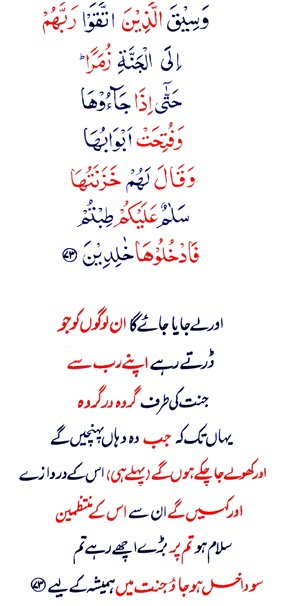 وَسِيْقَ الَّذِيْنَ اتَّقَوْا رَبَّهُمْ
اِلَى الْجَنَّةِ زُمَرًا ؕ
حَتّٰۤى اِذَا جَآءُوْهَا
وَفُتِحَتْ اَبْوَابُهَا
وَقَالَ لَهُمْ خَزَنَتُهَا
سَلٰمٌ عَلَيْكُمْ طِبْتُمْ
فَادْخُلُوْهَا خٰلِدِيْنَ ﴿۷۳﴾
اور لے جایا جائے گا ان لوگوں کو جو
ڈرتے رہے اپنے رب سے
جنت کی طرف گروہ در گروہ
یہاں تک کہ جب وہ وہاں پہنچیں گے
اور کھولے جاچکے ہوں گے (پہلے ہی) اس کے دروازے
اور کہیں گے ان سے اس کے منتظمین
سلام ہو تم پر بڑے اچھے رہے تم
سو داخل ہو جاؤ جنت میں ہمیشہ کے لیے ﴿۷۳﴾